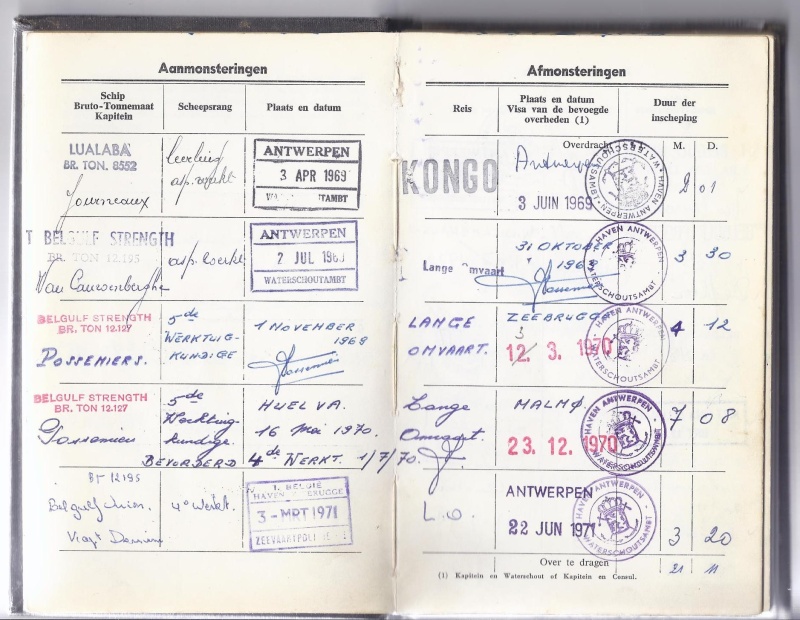 Aanmonsteringen
Schip
Bruto-Tonnemaat
Kapitein
Scheepsrang
Plaats en datum
LUALABA
BR. TON. 8552
Journeaux
leerling
asp. werkt
ANTWERPEN
3 APR 1969
WATERSCHOUTSAMBT
BELGULF STRENGTH
BR. TON 12.195
Van Cauwenberghe
asp. werkt
ANTWERPEN
2 JUL 1969
WATERSCHOUTAMBT
BELGULF STRENGTH
BR. TON 12.127
POSSEMIERS.
5de
WERKTUIG-
KUNDIGE
1 NOVEMBER
1969
BELGULF STRENGTH
BR. TON 12.127
Possemiers
5de
Werktuig-
kundige.
HUELVA.
16 Mei 1970.
BEVORDERD 4de WERKT. 1/7/70.
BT 12195
Belgulf Union.
4° Werkt.
ZEEBRUGGE
3-MRT 1971
Afmonsteringen
Reis
Plaats en datum
Visa van de bevoegde
overheden (1)
Duur der
inscheping
Overdracht
M. D.
KONGO
Antwerpen
3 JUIN 1969
HAVEN ANTWERPEN WATERSCHOUTSAMBT
2 01
Lange Omvaart
31 OKTOBER
1969
HAVEN ANTWERPEN WATERSCHOUTSAMBT
3 30
LANGE
OMVAART.
ZEEBRUGGE
12. 3. 1970
3
HAVEN ANTWERPEN WATERSCHOUTSAMBT
4 12
Lange
Omvaart.
MALMØ.
23. 12. 1970
HAVEN ANTWERPEN WATERSCHOUTSAMBT
7 08
L.O.
ANTWERPEN
22 JUN 1971
HAVEN ANTWERPEN WATERSCHOUTSAMBT
3 20
Over te dragen
21 11
(1) Kapitein en Waterschout of Kapitein en Consul.